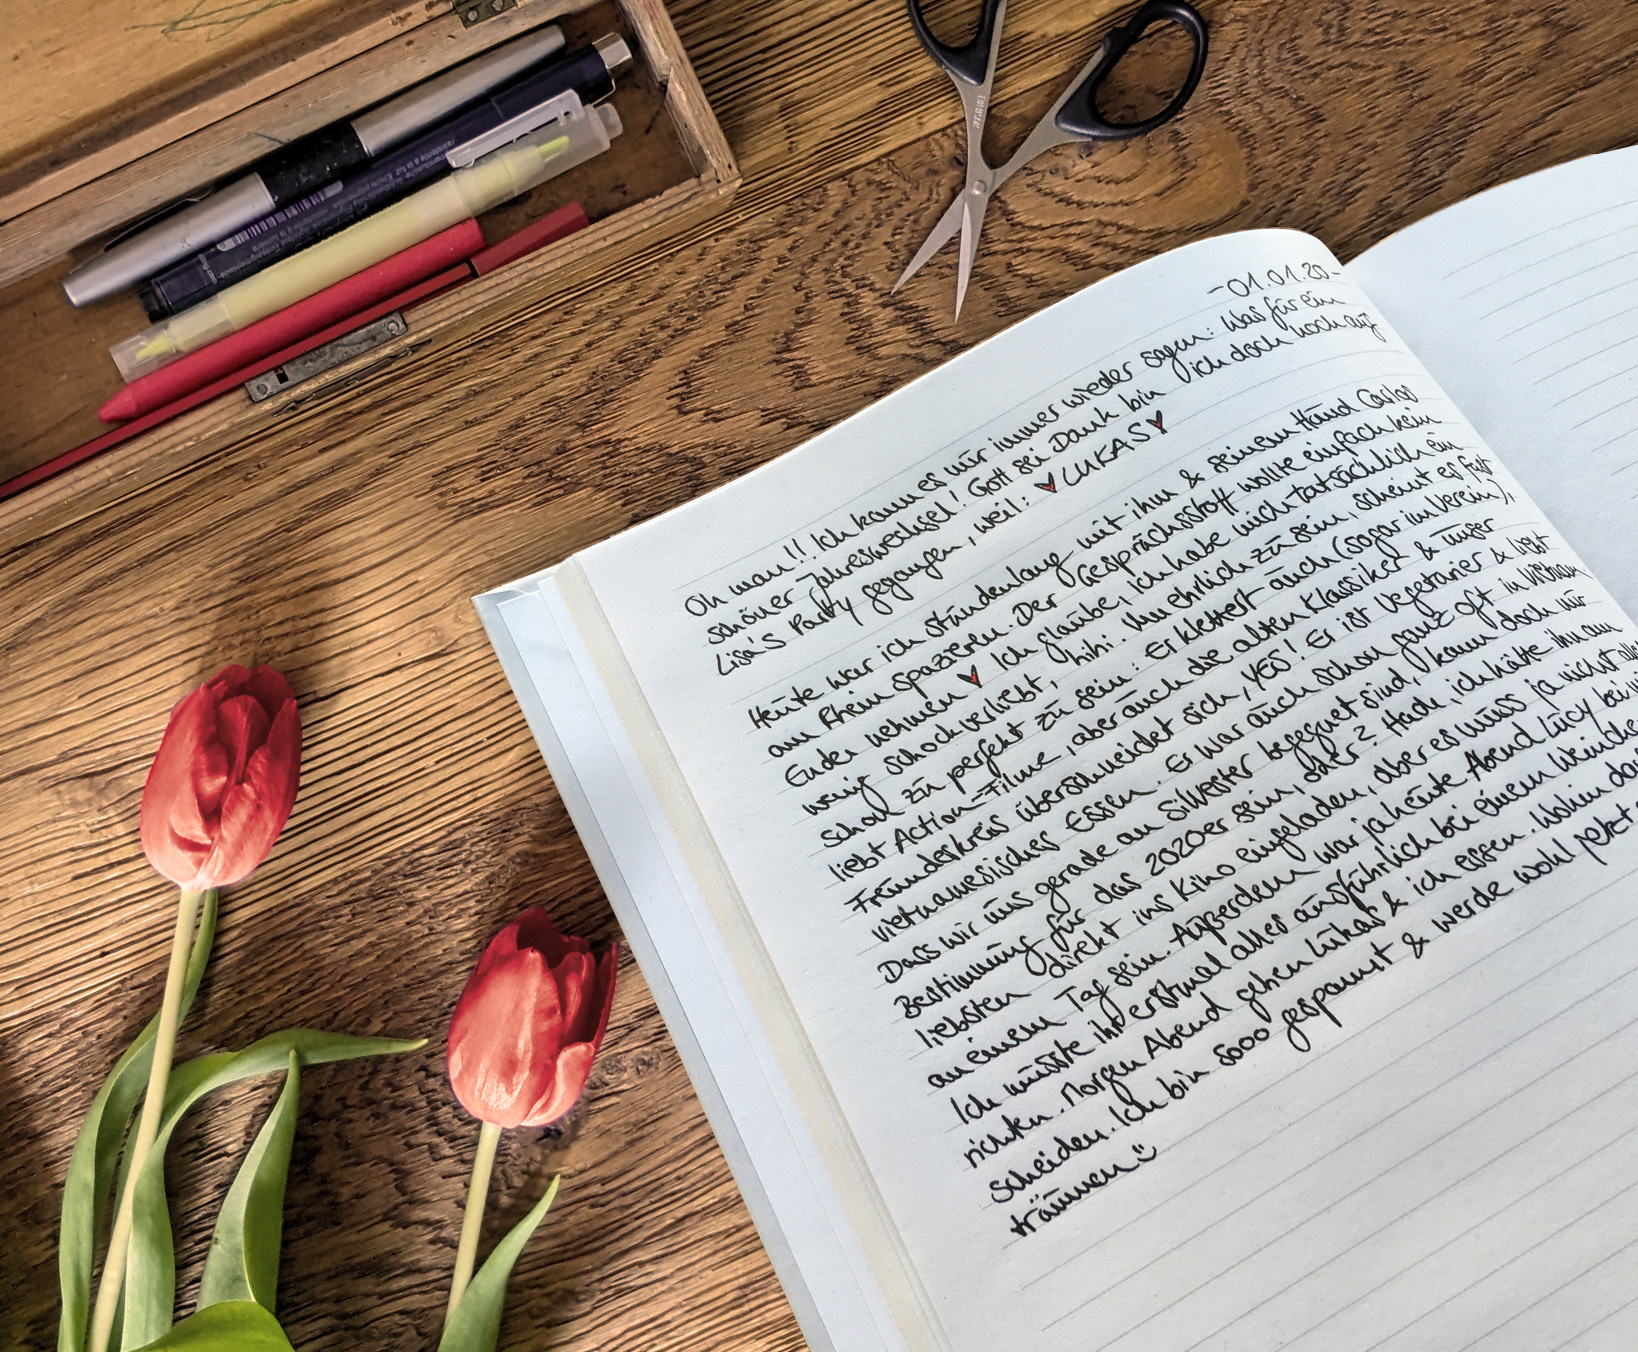 -01.01.20-
Oh man!! Ich kann es mir immer wieder sagen: Was für ein
schöner Jahreswechsel! Gott sei Dank bin ich doch noch auf
Lisa's Party gegangen, weil: ♥LUKAS♥
Heute war ich stundenlang mit ihm & seinem Hund Carlos
am Rhein spazieren. Der Gesprächsstoff wollte einfach kein
Ende nehmen ♥ Ich glaube, ich habe mich tatsächlich ein
wenig schockverliebt, hihi. Um ehrlich zu sein, scheint es fast
schon zu perfekt zu sein: Er klettert auch (sogar im Verein),
liebt Action-Filme, aber auch die alten Klassiker & unser
Freundeskreis überschneidet sich, YES! Er ist Vegetarier & liebt
vietnamesisches Essen. Er war auch schon ganz oft in Vietnam
Dass wir uns gerade an Silvester begegnet sind, kann doch nur
Bestimmung für das 2020er sein, oder? Hach, ich hätte ihn am
liebsten direkt ins Kino eingeladen, aber es muss ja nicht alles
an einem Tag sein. Außerdem war ja heute Abend Lucy bei
Ich musste ihr erstmal alles ausführlich bei einem
richten. Morgen Abend gehen Lukas & ich essen. Wohin
scheiden. Ich bin sooo gespannt & werde wohl jetzt
träumen